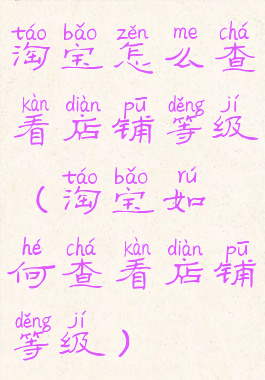 táo bǎo zěn me chá
淘宝怎么查
kàn diàn pū děng jí
看店铺等级
táo bǎo rú
（淘宝如
hé chá kàn diàn pū
何查看店铺
děng jí
等级）